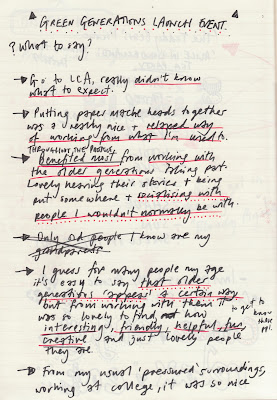 GREEN GENERATIONS LAUNCH EVENT.
? What to say?
→ Go to LCA, really didn't know
what to expect.
→ Putting paper maché heads together
was a really nice + relaxed way
of working from what I'm used to.
THROUGHOUT THE PROCESS
→ Benefited most from working with
the older generations taking part.
Lovely hearing their stories + being
put somewhere + socialising with
people I wouldn't normally be with
→ Only old people I know are my
grandparents
→ I guess for many people my age
it's easy to say that older
generation 'appear' a certain way
but from working with them it
was so lovely to find out how to get to
interesting, friendly, helpful, fun, know
creative and just lovely people these ppl.
they are.
→ From my usual 'pressured' surroundings,
working at college, it was so nice